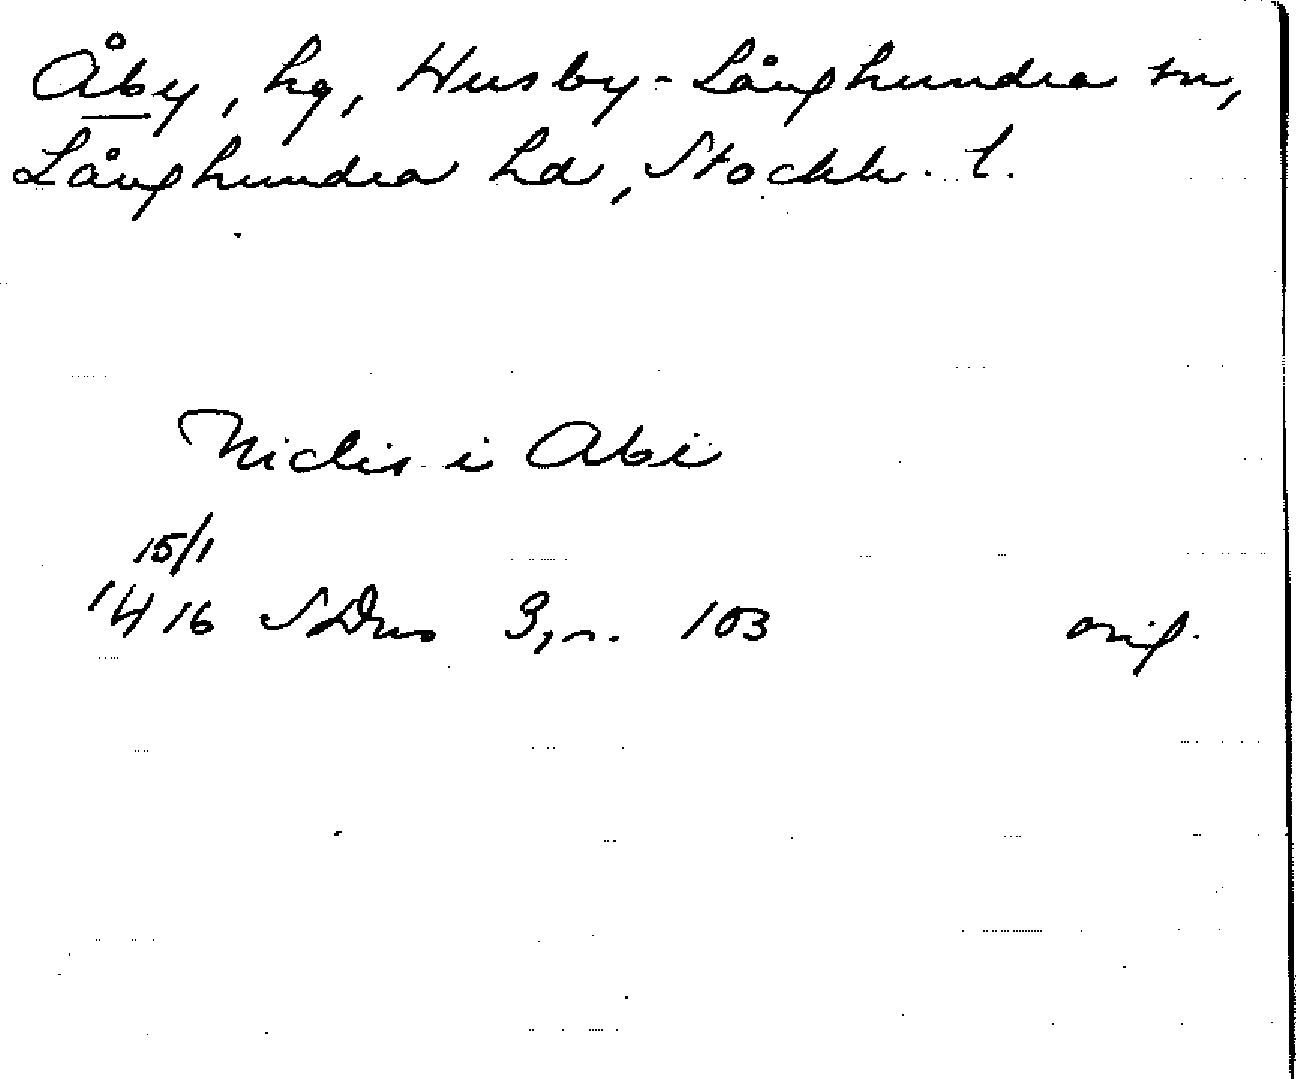 Åby, hg, Husby-Långhundra sn,
Långhundra hd, Stockh. l.
Niclis i Abi
15/1
1416 SDns 3, n. 103 orig.